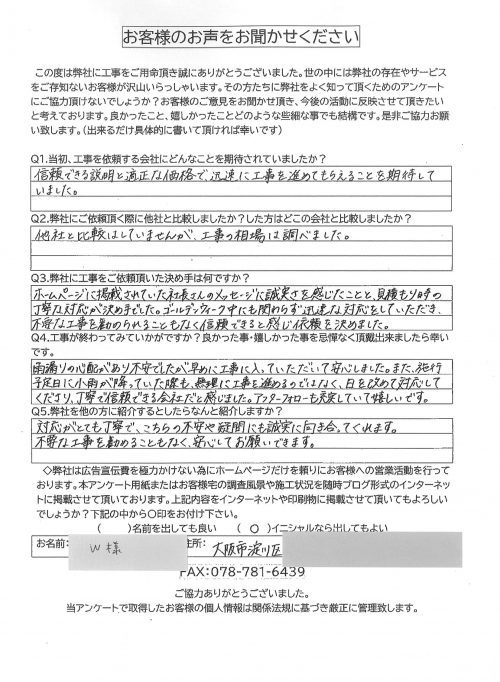 お客様のお声をお聞かせください
この度は弊社に工事をご用命頂き誠にありがとうございました。世の中には弊社の存在やサービス
をご存知ないお客様が沢山いらっしゃいます。その方たちに弊社をよく知って頂くためのアンケート
にご協力頂けないでしょうか？お客様のご意見をお聞かせ頂き、今後の活動に反映させて頂きたい
と考えております。良かったこと、嬉しかったことどのような些細な事でも結構です。是非ご協力お願
い致します。（出来るだけ具体的に書いて頂ければ幸いです）
Q1.当初、工事を依頼する会社にどんなことを期待されていましたか？
信頼できる説明と適正な価格で、迅速に工事を進めてもらえることを期待して
いました。
Q2.弊社にご依頼頂く際に他社と比較しましたか？した方はどこの会社と比較しましたか？
他社と比較はしていませんが、工事の相場は調べました。
Q3.弊社に工事をご依頼頂いた決め手は何ですか？
ホームページに掲載されていた社長さんのメッセージに誠実さを感じたことと、見積もり時の
丁寧な対応が決め手でした。ゴールデンウィーク中にも関わらず迅速な対応をしていただき、
不要な工事を勧められることもなく信頼できると感じ依頼を決めました。
Q4.工事が終わってみていかがですか？良かった事・嬉しかった事を忌憚なく頂戴出来ましたら幸い
です。
雨漏りの心配があり不安でしたが早めに工事に入っていただいて安心しました。また、施行
予定日に小雨が降っていた際も、無理に工事を進めるのではなく、日を改めて対応して
くださり、丁寧で信頼できる会社だと感じました。アフターフォローも充実していて嬉しいです。
Q5.弊社を他の方に紹介するとしたらなんと紹介しますか？
対応がとても丁寧で、こちらの不安や疑問にも誠実に向き合ってくれます。
不要な工事を勧めることもなく、安心してお願いできます。
◇弊社は広告宣伝費を極力かけない為にホームページだけを頼りにお客様への営業活動を行って
おります。本アンケート用紙またはお客様宅の調査風景や施工状況を随時ブログ形式のインターネ
ットに掲載させて頂いております。上記内容をインターネットや印刷物に掲載させて頂いてもよろしい
でしょうか？下記の中から〇印をお付け下さい。
（　　）名前を出しても良い　（ ○ ）イニシャルなら出してもよい
お名前: W 様 住所: 大阪市淀川区
FAX:078-781-6439
ご協力ありがとうございました。
当アンケートで取得したお客様の個人情報は関係法規に基づき厳正に管理致します。